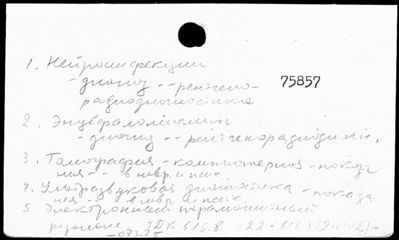 1. Нейроинфекции
- диагноз -- рентгено-
радиодиагностика
75857
2. Энцефаломиелит
- диагноз -- рентгенорадиодиагн.
3. Томография - компьютерная - показа
ния -- в невр. и псих.
4. Ультразвуковая диагностика - показа
ния -- в невр. и псих.
5. Электронный парамагнитный
резонанс УДК 616.8
-073.75